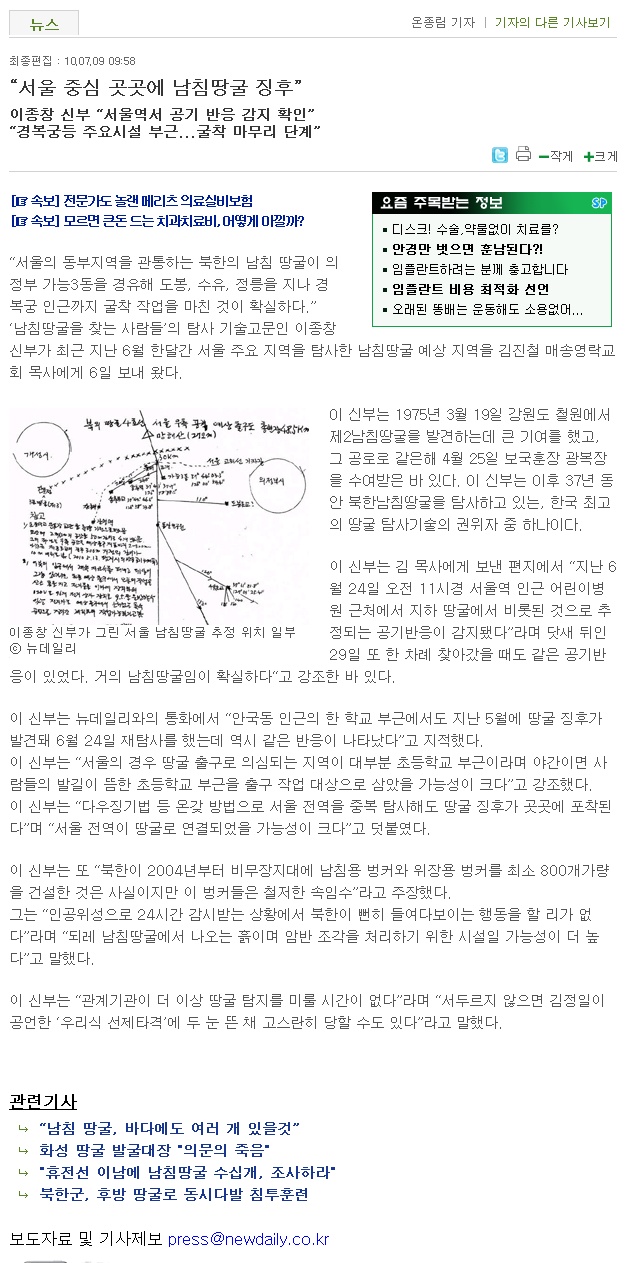 뉴스
온종림 기자 | 기자의 다른 기사보기
최종편집 : 10.07.09 09:58
“서울 중심 곳곳에 남침땅굴 징후”
이종창 신부 “서울역서 공기 반응 감지 확인”
“경복궁등 주요시설 부근...굴착 마무리 단계”
작게 크게
[☞ 속보] 전문가도 놀랜 메리츠 의료실비보험
[☞ 속보] 모르면 큰돈 드는 치과치료비, 어떻게 아낄까?
요즘 주목받는 정보 SP
디스크! 수술,약물없이 치료를?
안경만 벗으면 훈남된다?!
임플란트하려는 분께 충고합니다
임플란트 비용 최적화 선언
오래된 똥배는 운동해도 소용없어...
“서울의 동부지역을 관통하는 북한의 남침 땅굴이 의
정부 가능3동을 경유해 도봉, 수유, 정릉을 지나 경
복궁 인근까지 굴착 작업을 마친 것이 확실하다.”
‘남침땅굴을 찾는 사람들’의 탐사 기술고문인 이종창
신부가 최근 지난 6월 한달간 서울 주요 지역을 탐사한 남침땅굴 예상 지역을 김진철 매송영락교
회 목사에게 6일 보내 왔다.
개성시
의정부시
이종창 신부가 그린 서울 남침땅굴 추정 위치 일부
ⓒ 뉴데일리
이 신부는 1975년 3월 19일 강원도 철원에서
제2남침땅굴을 발견하는데 큰 기여를 했고,
그 공로로 같은해 4월 25일 보국훈장 광복장
을 수여받은 바 있다. 이 신부는 이후 37년 동
안 북한남침땅굴을 탐사하고 있는, 한국 최고
의 땅굴 탐사기술의 권위자 중 하나이다.
이 신부는 김 목사에게 보낸 편지에서 “지난 6
월 24일 오전 11시경 서울역 인근 어린이병
원 근처에서 지하 땅굴에서 비롯된 것으로 추
정되는 공기반응이 감지됐다”라며 닷새 뒤인
29일 또 한 차례 찾아갔을 때도 같은 공기반
응이 있었다. 거의 남침땅굴임이 확실하다“고 강조한 바 있다.
이 신부는 뉴데일리와의 통화에서 “안국동 인근의 한 학교 부근에서도 지난 5월에 땅굴 징후가
발견돼 6월 24일 재탐사를 했는데 역시 같은 반응이 나타났다”고 지적했다.
이 신부는 “서울의 경우 땅굴 출구로 의심되는 지역이 대부분 초등학교 부근이라며 야간이면 사
람들의 발길이 뜸한 초등학교 부근을 출구 작업 대상으로 삼았을 가능성이 크다”고 강조했다.
이 신부는 “다우징기법 등 온갖 방법으로 서울 전역을 중복 탐사해도 땅굴 징후가 곳곳에 포착된
다”며 “서울 전역이 땅굴로 연결되었을 가능성이 크다”고 덧붙였다.
이 신부는 또 “북한이 2004년부터 비무장지대에 남침용 벙커와 위장용 벙커를 최소 800개가량
을 건설한 것은 사실이지만 이 벙커들은 철저한 속임수”라고 주장했다.
그는 “인공위성으로 24시간 감시받는 상황에서 북한이 뻔히 들여다보이는 행동을 할 리가 없
다”라며 “되레 남침땅굴에서 나오는 흙이며 암반 조각을 처리하기 위한 시설일 가능성이 더 높
다”고 말했다.
이 신부는 “관계기관이 더 이상 땅굴 탐지를 미룰 시간이 없다”라며 “서두르지 않으면 김정일이
공언한 ‘우리식 선제타격’에 두 눈 뜬 채 고스란히 당할 수도 있다”라고 말했다.
관련기사
“남침 땅굴, 바다에도 여러 개 있을것”
화성 땅굴 발굴대장 "의문의 죽음"
"휴전선 이남에 남침땅굴 수십개, 조사하라"
북한군, 후방 땅굴로 동시다발 침투훈련
보도자료 및 기사제보 press@newdaily.co.kr